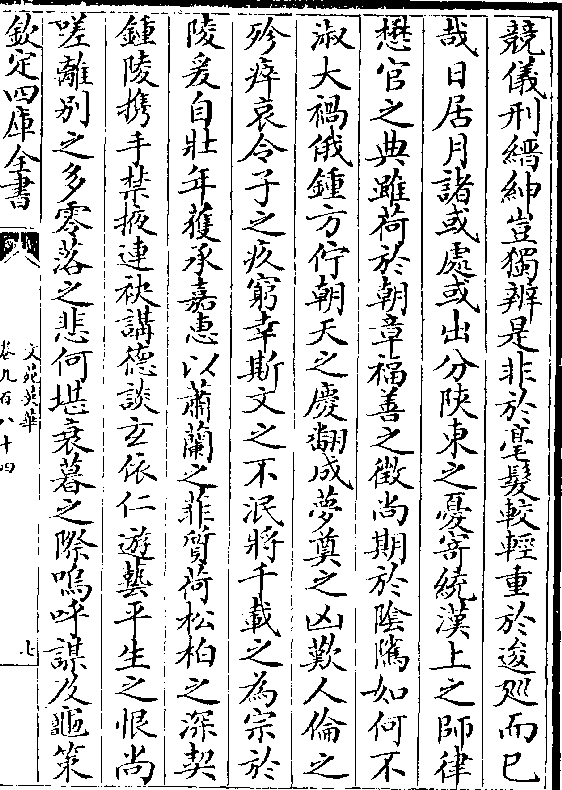 競儀刑縉紳豈獨辨是非於毫髮較輕重於逡廵而已
哉日居月諸或處或出分陜東之憂寄統漢上之師律
懋官之典雖荷於朝章福善之徴尚期於陰隲如何不
淑大禍俄鍾方佇朝天之慶翻成夢奠之凶歎人倫之
殄瘁哀令子之疚窮幸斯文之不泯將千載之為宗於
陵爰自壯年獲承嘉惠以蕭蘭之菲質荷松柏之深契
鍾陵携手禁掖連袂講德談𤣥依仁遊藝平生之恨尚
嗟離别之多零落之悲何堪衰暮之際嗚呼謀及龜筴
欽定四庫全書
文苑英華
卷九百八十四
七